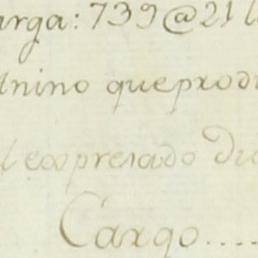 arga: 739@21 l
nino que prod
el expresado di
Cargo....